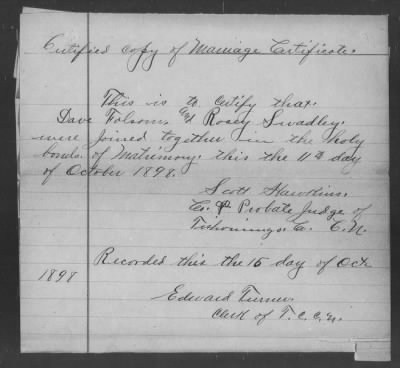 Certified copy of Marriage Certificate.
This is to certify that.
Dave Folsom and Rosey Swadley.
were joined together in the holy
bonds. of Matrimony. this the 11th day
of October 1898.
Scott Hawkins.
Co. & Probate Judge of
Tishomingo. Co. C.N.
Recorded this the 15 day of Oct
1898
Edward Turner.
Clerk of T. C. C.N.